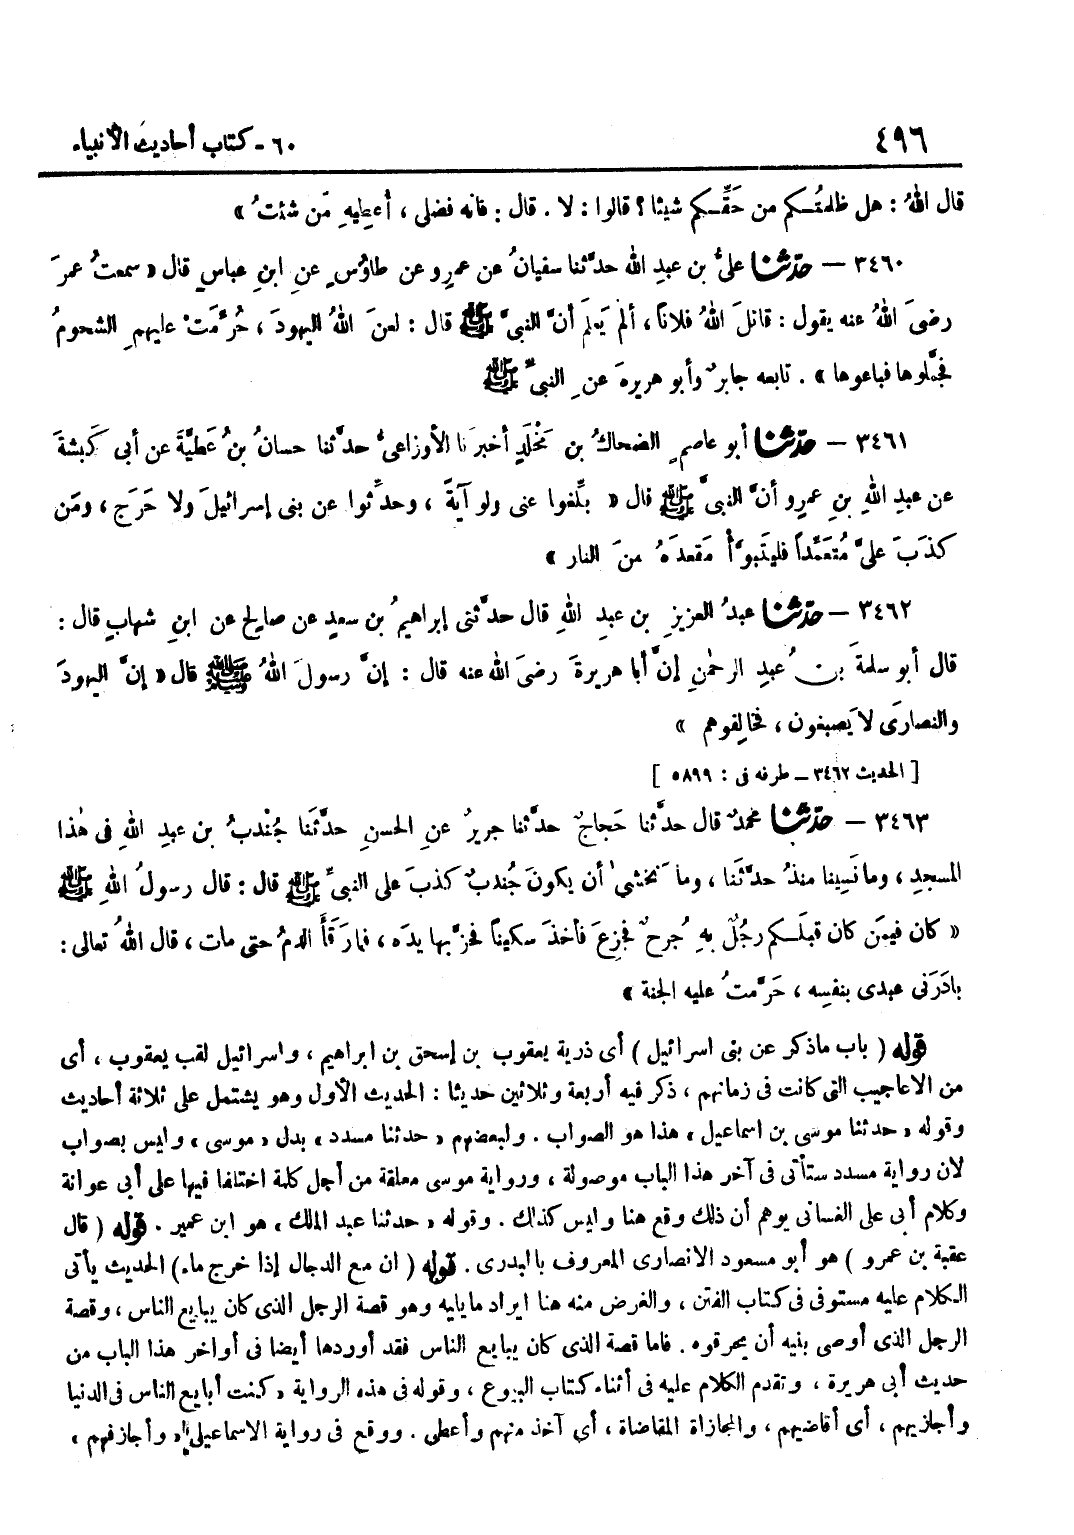 ٤٩٦ ٦٠ - كتاب أحاديث الأنبياء
قال اللهُ : هل ظلمتُـكم من حَقِّـكم شيئا ؟ قالوا : لا . قال : فانه فضلى ، أُعطِيهِ مَن شئتُ »
٣٤٦٠ — حدّثنا علىُّ بن عبدِ الله حدَّثنا سفيانُ عن عمرٍو عن طاوُسٍ عنِ ابنِ عباسٍ قال « سمعتُ عمرَ
رضىَ اللهُ عنه يقول : قاتلَ اللهُ فلاناً ، ألم يَعلَم أنَّ النبىَّ ﷺ قال : لعنَ اللهُ اليهودَ ، حُرِّمَتْ عليهمِ الشحومُ
فجمَّلوها فباعوها » . تابعه جابرٌ وأبو هريرةَ عنِ النبىِّ ﷺ
٣٤٦١ — حدّثنا أبو عاصمٍ الضحاكُ بن مَخْلَدٍ أخبرَنا الأوزاعىُّ حدَّثنا حسانُ بنُ عَطيَّةَ عن أبى كَبشةَ
عن عبدِ اللهِ بنِ عمرٍو أنَّ النبىَّ ﷺ قال « بلِّغوا عنى ولو آيةً ، وحدِّثوا عن بنى إسرائيلَ ولا حَرَج ، ومَن
كذَبَ علىَّ مُتعَمِّداً فليتَبوَّأْ مَقعدَهُ منَ النار »
٣٤٦٢ — حدّثنا عبدُ العزيزِ بن عبدِ اللهِ قال حدَّثنى إبراهيمُ بن سعدٍ عن صالحٍ عن ابنِ شهابٍ قال :
قال أبو سلمةَ بنُ عبدِ الرحمٰنِ إنَّ أبا هريرةَ رضىَ الله عنه قال : إنَّ رسولَ اللهُ ﷺ قال « إنَّ اليهودَ
والنصارَى لا يَصبغون ، فخالِفوهم »
[ الحديث ٣٤٦٢ — طرفه فى : ٥٨٩٩ ]
٣٤٦٣ — حدّثنا محمدٌ قال حدَّثنا حَجاجٌ حدَّثنا جريرٌ عنِ الحسنِ حدَّثَنا جُندبُ بن عبدِ اللهِ فى هٰذا
المسجدِ ، وما نَسِينا منذُ حدَّثَنا ، وما نَخشىٰ أن يكونَ جُندبٌ كذبَ على النبىِّ ﷺ قال : قال رسولُ اللهِ ﷺ
« كان فيمَن كان قبلَـكم رجُلٌ بهِ جُرحٌ فجزِعَ فأخذَ سكيناً فحزَّ بها يدَه ، فما رَقأَ الدمُ حتى مات ، قال اللهُ تعالى :
بادَرَنى عبدى بنفسِه ، حَرَّمتُ عليه الجنة »
قوله ( باب ماذكر عن بنى اسرائيل ) أى ذرية يعقوب بن إسحق بن ابراهيم ، واسرائيل لقب يعقوب ، أى
من الاعاجيب التى كانت فى زمانهم ، ذكر فيه أربعة وثلاثين حديثا : الحديث الأول وهو يشتمل على ثلاثة أحاديث
وقوله « حدثنا موسى بن اسماعيل » هذا هو الصواب . ولبعضهم « حدثنا مسدد » بدل « موسى » وليس بصواب
لان رواية مسدد ستأتى فى آخر هذا الباب موصولة ، ورواية موسى معلقة من أجل كلمة اختلفا فيها على أبى عوانة
وكلام أبى على الغسانى يوهم أن ذلك وقع هنا وليس كذلك . وقوله « حدثنا عبد الملك » هو ابن عمير . قوله ( قال
عقبة بن عمرو ) هو أبو مسعود الانصارى المعروف بالبدرى . قوله ( ان مع الدجال إذا خرج ماء ) الحديث يأتى
الكلام عليه مستوفى فى كتاب الفتن ، والغرض منه هنا ايراد مايليه وهو قصة الرجل الذى كان يبايع الناس ، وقصة
الرجل الذى أوصى بنيه أن يحرقوه . فاما قصة الذى كان يبايع الناس فقد أوردها أيضا فى أواخر هذا الباب من
حديث أبى هريرة ، وتقدم الكلام عليه فى أثناء كتاب البيوع ، وقوله فى هذه الرواية « كنت أبايع الناس فى الدنيا
وأجازيهم ، أى أقاضيهم ، والمجازاة المقاضاة ، أي آخذ منهم وأعطى . ووقع فى رواية الاسماعيلى « وأجازفهم »